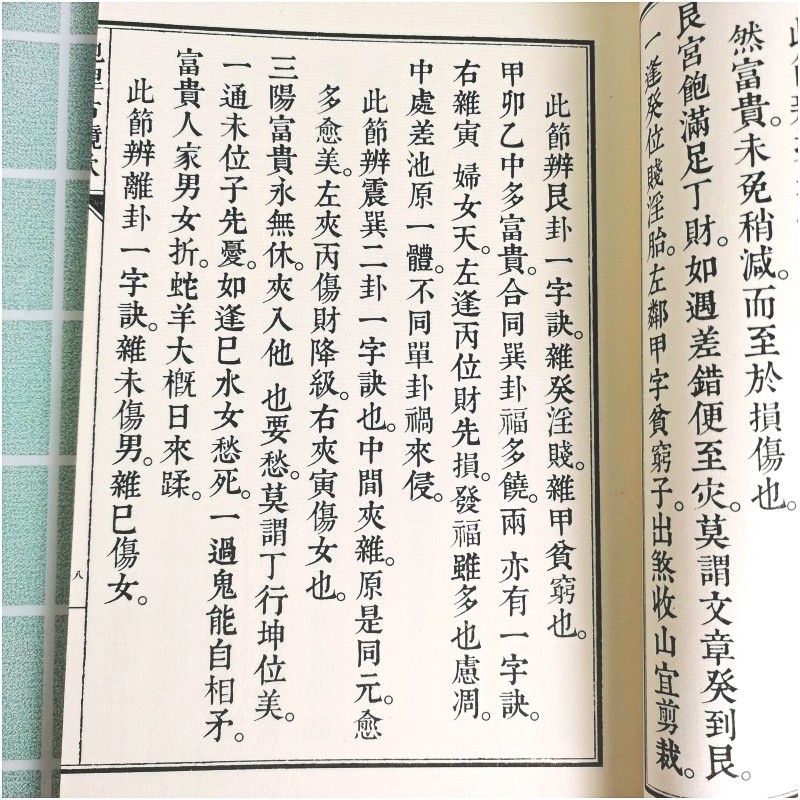 然富貴。未免稍減。而至於損傷也。
艮宮飽滿足丁財。如遇差錯便至灾。莫謂文章癸到艮。
一逢癸位賤淫胎。左鄰甲字貧窮子。出煞收山宜剪裁。
此節辨艮卦一字訣。雜癸淫賤。雜甲貧窮也。
甲卯乙中多富貴。合同巽卦福多饒。兩 亦有一字訣。
右雜寅 婦女天。左逢丙位財先損。發福雖多也慮凋。
中處差池原一體。不同單卦禍來侵。
此節辨震巽二卦一字訣也。中間夾雜。原是同元。愈
多愈美。左夾丙傷財降級。右夾寅傷女也。
三陽富貴永無休。夾入他 也要愁。莫謂丁行坤位美。
一通未位子先憂。如逢巳水女愁死。一過鬼能自相矛。
富貴人家男女折。蛇羊大槪日來蹂。
此節辨離卦一字訣。雜未傷男。雜巳傷女。
八